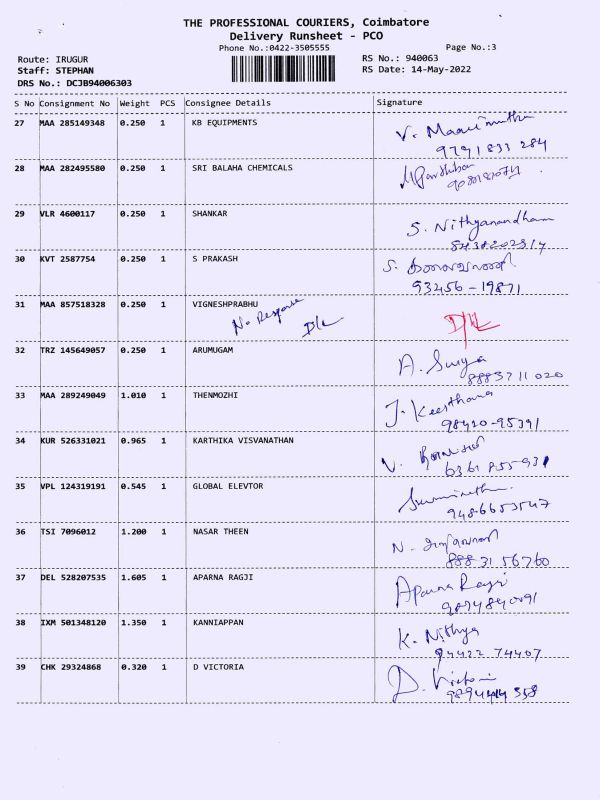 THE PROFESSIONAL COURIERS, Coimbatore
Delivery Runsheet - PCO
Phone No.:0422-3505555
Page No.:3
Route: IRUGUR
RS No.: 940063
Staff: STEPHAN
RS Date: 14-May-2022
DRS No.: DCJB94006303
S No Consignment No Weight PCS Consignee Details Signature
27 MAA 285149348 0.250 1 KB EQUIPMENTS
9791833 284
28 MAA 282495580 0.250 1 SRI BALAHA CHEMICALS
29 VLR 4600117 0.250 1 SHANKAR S. Nithyanandham
30 KVT 2587754 0.250 1 S PRAKASH S.
93456-19871
31 MAA 857518328 0.250 1 VIGNESHPRABHU
No Response D/L D/L
32 TRZ 145649057 0.250 1 ARUMUGAM A. Surya
8883711020
33 MAA 289249049 1.010 1 THENMOZHI J. Keerthana
98420-95391
34 KUR 526331021 0.965 1 KARTHIKA VISVANATHAN
6361 855931
35 VPL 124319191 0.545 1 GLOBAL ELEVTOR
9486653547
36 TSI 7096012 1.200 1 NASAR THEEN N.
88831 56760
37 DEL 528207535 1.605 1 APARNA RAGJI Aparna Ragji
38 IXM 501348120 1.350 1 KANNIAPPAN K. Nithya
94422 74407
39 CHK 29324868 0.320 1 D VICTORIA D. Victoria